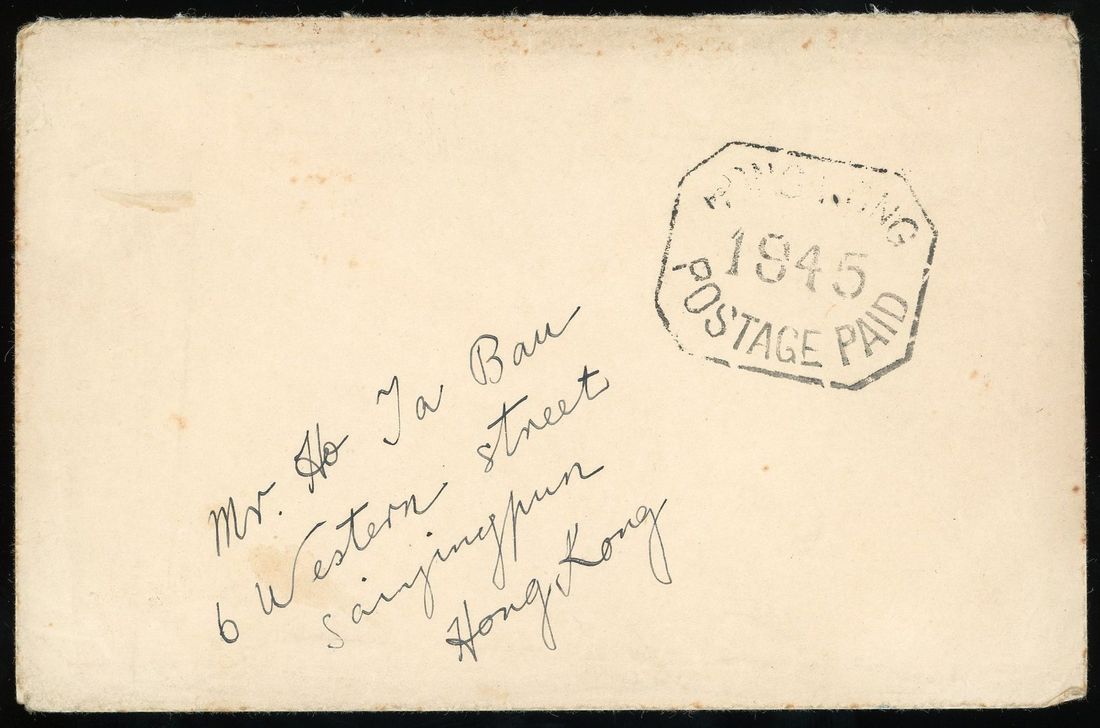 HONG KONG
1945
POSTAGE PAID
Mr. Ho Ja Bau
6 Western street
saiyingpun
Hong Kong